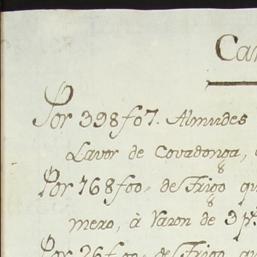 Car
Por 398fo7. Almudes
Lavor de Covadonga,
Por 768foo, de Trigo qu
mero, à Varon de 3 p
Por 26foo, de Trigo, qu